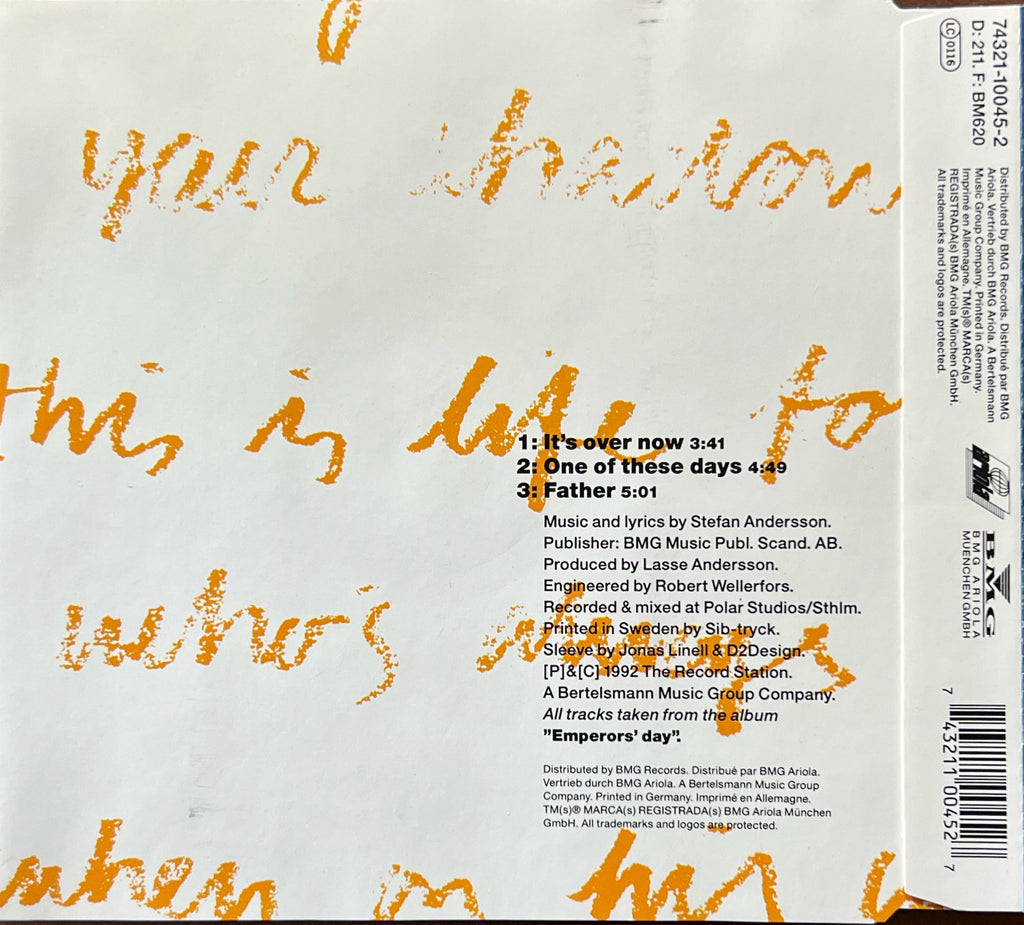 your shadow
this is life to
who's always
when on his
1: It's over now 3:41
2: One of these days 4:49
3: Father 5:01
Music and lyrics by Stefan Andersson.
Publisher: BMG Music Publ. Scand. AB.
Produced by Lasse Andersson.
Engineered by Robert Wellerfors.
Recorded & mixed at Polar Studios/Sthlm.
Printed in Sweden by Sib-tryck.
Sleeve by Jonas Linell & D2Design.
[P]&[C] 1992 The Record Station.
A Bertelsmann Music Group Company.
All tracks taken from the album
”Emperors’ day”.
Distributed by BMG Records. Distribué par BMG Ariola.
Vertrieb durch BMG Ariola. A Bertelsmann Music Group
Company. Printed in Germany. Imprimé en Allemagne.
TM(s)® MARCA(s) REGISTRADA(s) BMG Ariola München
GmbH. All trademarks and logos are protected.
74321-10045-2
D: 211. F: BM620
LC 0116
Distributed by BMG Records. Distribué par BMG
Ariola. Vertrieb durch BMG Ariola. A Bertelsmann
Music Group Company. Printed in Germany.
Imprimé en Allemagne. TM(s)® MARCA(s)
REGISTRADA(s) BMG Ariola München GmbH.
All trademarks and logos are protected.
ariola
BMG
BMG ARIOLA
MUENCHEN GMBH
7 43211 00452 7